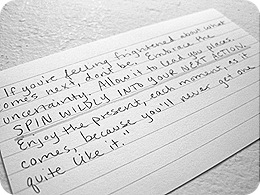 If you're feeling frightened about what
comes next, don't be. Embrace the
uncertainty. Allow it to lead you places.
SPIN WILDLY INTO YOUR NEXT ACTION.
Enjoy the present, each moment, as it
comes, because you'll never get one
quite like it."